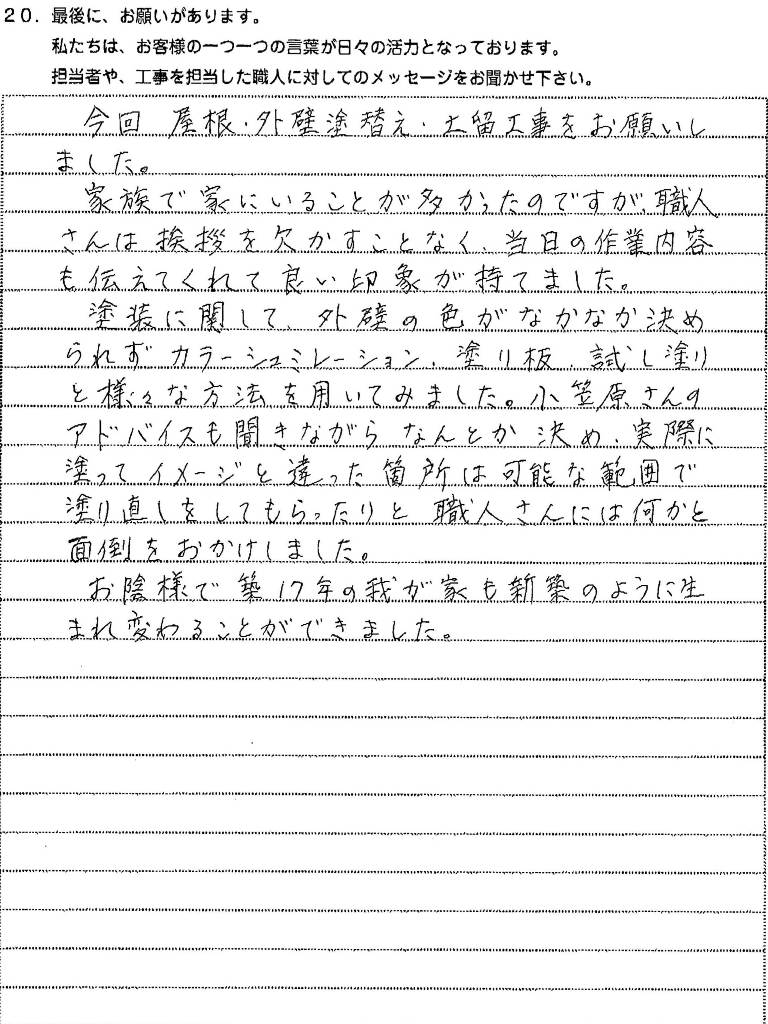 20. 最後に、お願いがあります。
私たちは、お客様の一つ一つの言葉が日々の活力となっております。
担当者や、工事を担当した職人に対してのメッセージをお聞かせ下さい。
今回 屋根・外壁塗替え・土留工事をお願いし
ました。
家族で家にいることが多かったのですが、職人
さんは挨拶を欠かすことなく、当日の作業内容
も伝えてくれて良い印象が持てました。
塗装に関して、外壁の色がなかなか決め
られず カラーシュミレーション、塗り板、試し塗り
と様々な方法を用いてみました。小笠原さんの
アドバイスも聞きながら なんとか 決め、実際に
塗って イメージと違った箇所は可能な範囲で
塗り直しをしてもらったりと 職人さんには何かと
面倒をおかけしました。
お陰様で築17年の我が家も新築のように生
まれ変わることができました。